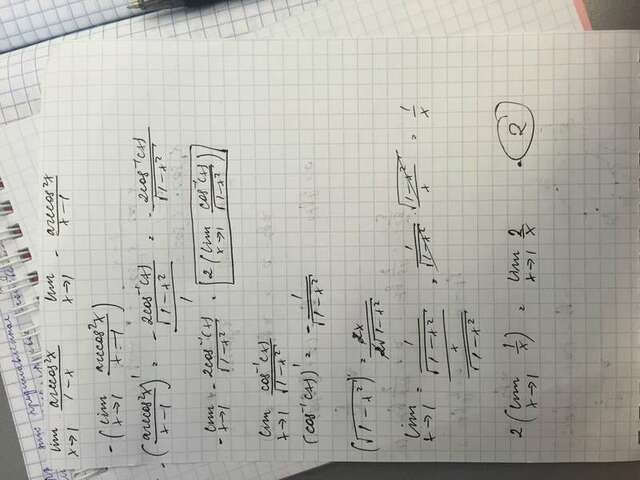 как представление
lim x→1 arccos²x / 1-x lim x→1 - arccos²x / x-1
-(lim x→1 arccos²x / x-1)
-(arccos²x / x-1)' = - 2cos⁻¹(x) / √1-x² / 1 = - 2cos⁻¹(x) / √1-x²
- lim x→1 - 2cos⁻¹(x) / √1-x² = 2(lim x→1 cos⁻¹(x) / √1-x²)
lim x→1 cos⁻¹(x) / √1-x²
(cos⁻¹(x))' = - 1 / √1-x²
(√1-x²)' = 2x / 2√1-x²
lim x→1 = 1 / √1-x² / x / √1-x² = 1 / √1-x² · √1-x² / x = 1 / x
2(lim x→1 1/x) = lim x→1 2/x = 2